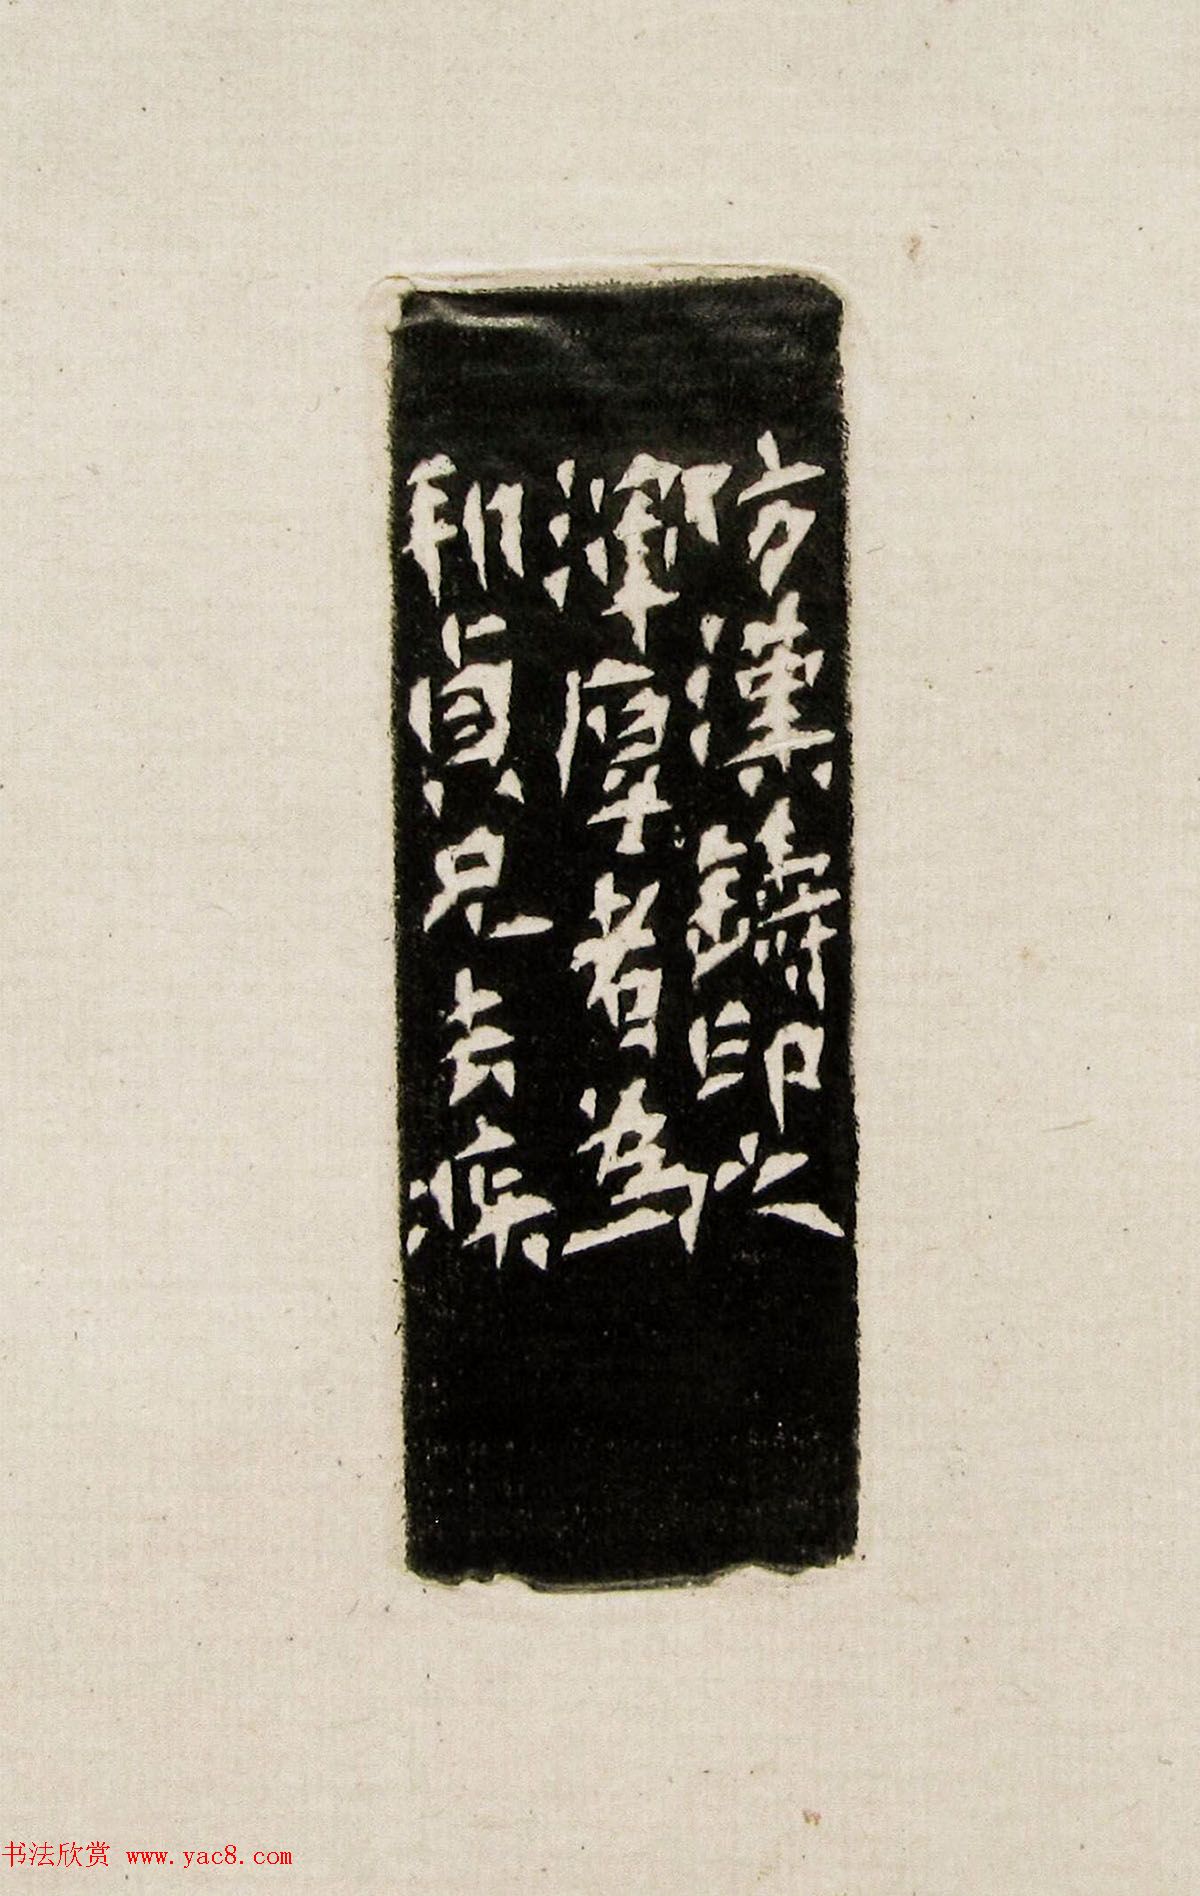 仿漢鑄印之
渾厚者為
真兄去疾
书法欣赏 www.yac8.com